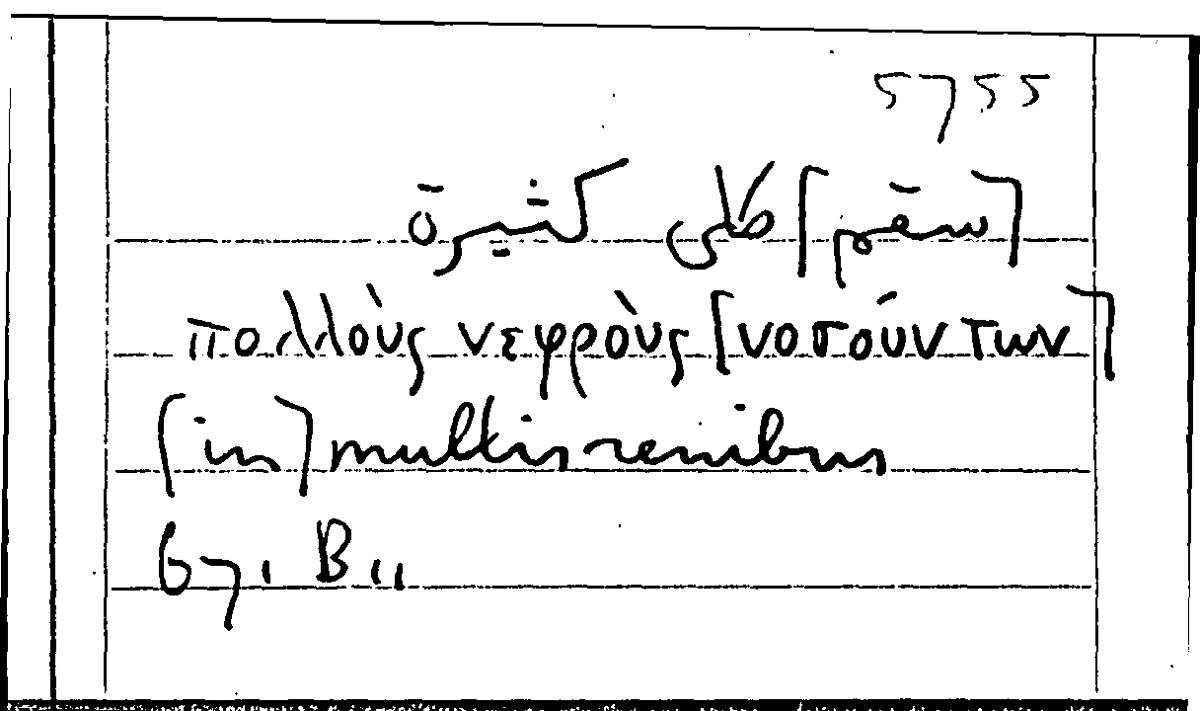 5755
[سقم] كلى كثيرة
πολλοὺς νεφροὺς [νοσούντων]
[in] multis renibus
671 B 11